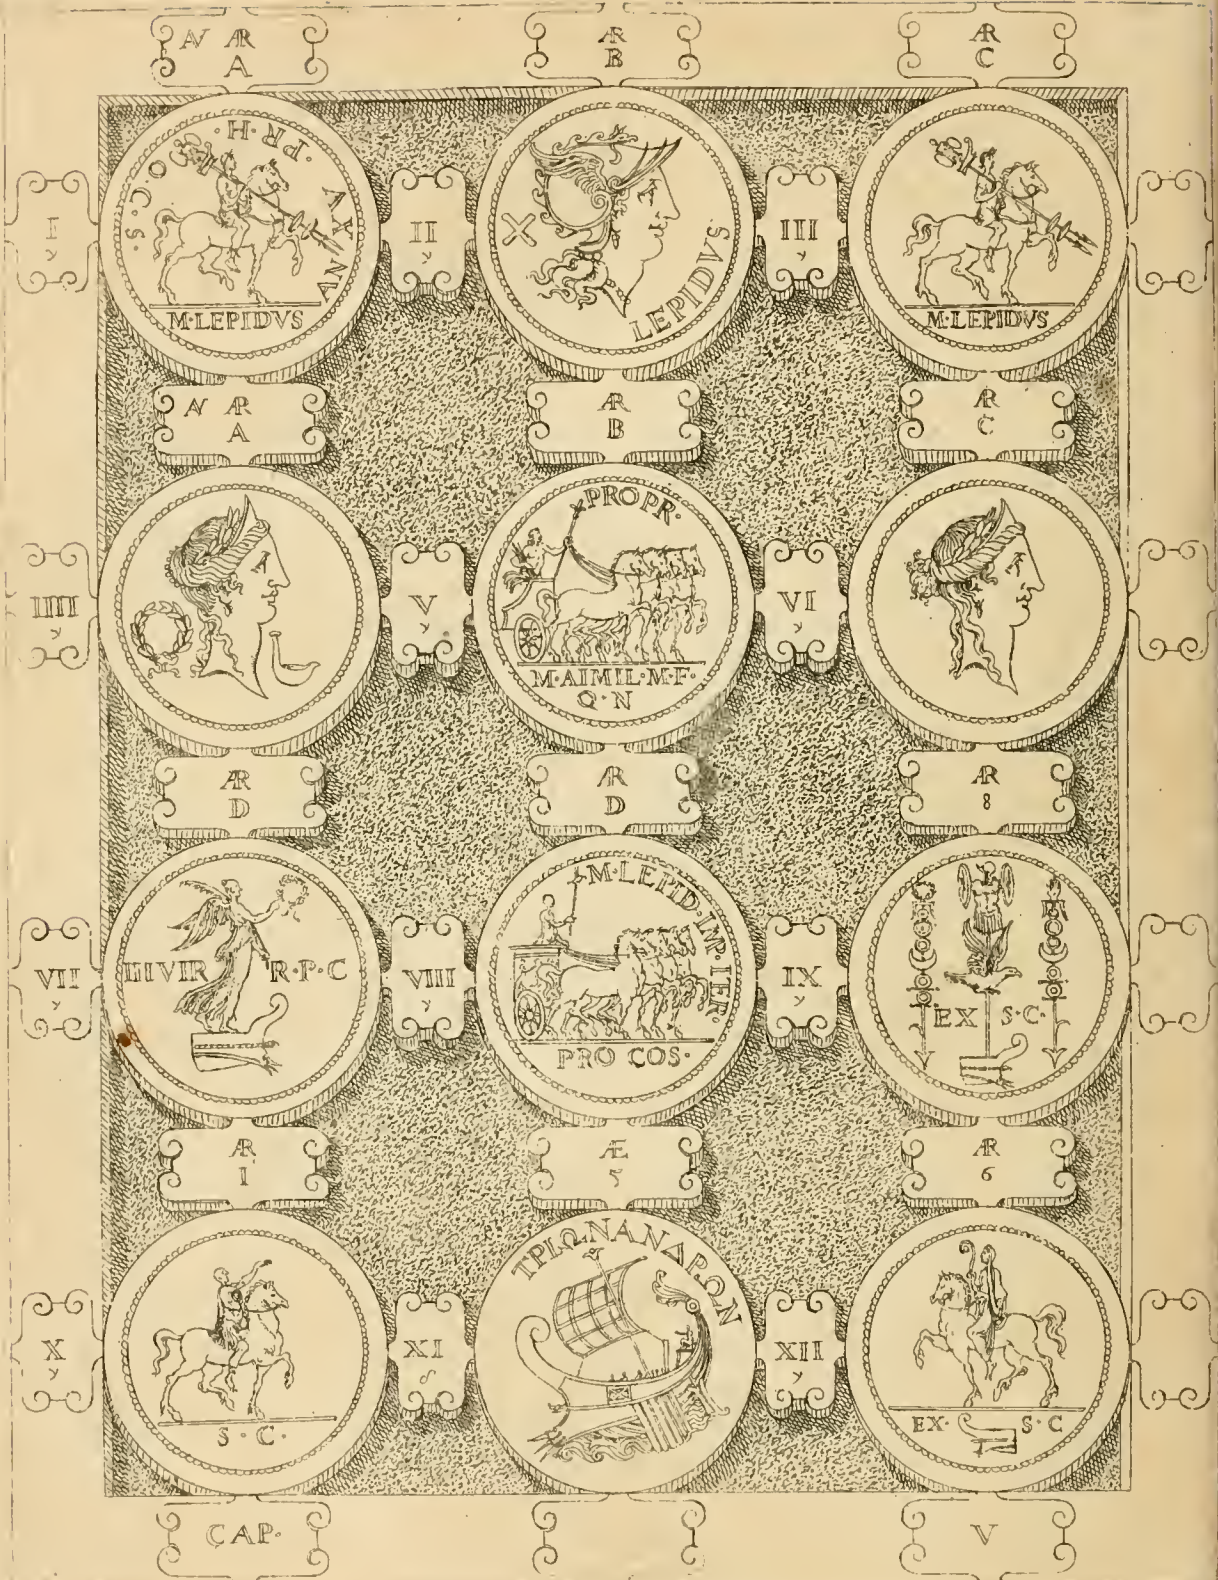 AV AR
A
AR
B
AR
C
I
·S·C·O· ·H·R·P·
AN XV
M·LEPIDVS
II
X
LEPIDVS
III
M·LEPIDVS
AV AR
A
AR
B
AR
C
IIII
V
PROPR·
M·AIMIL·M·F·
Q·N
VI
AR
D
AR
D
AR
8
VII
IIIVIR R·P·C
VIII
M·LEPID·IMP·TER·
PRO COS·
IX
EX S·C·
AR
1
Æ
5
AR
6
X
S·C·
XI
8
ΤΡΙΩΝΑΝΔΡΟΝ
XII
EX· S·C
CAP·
V